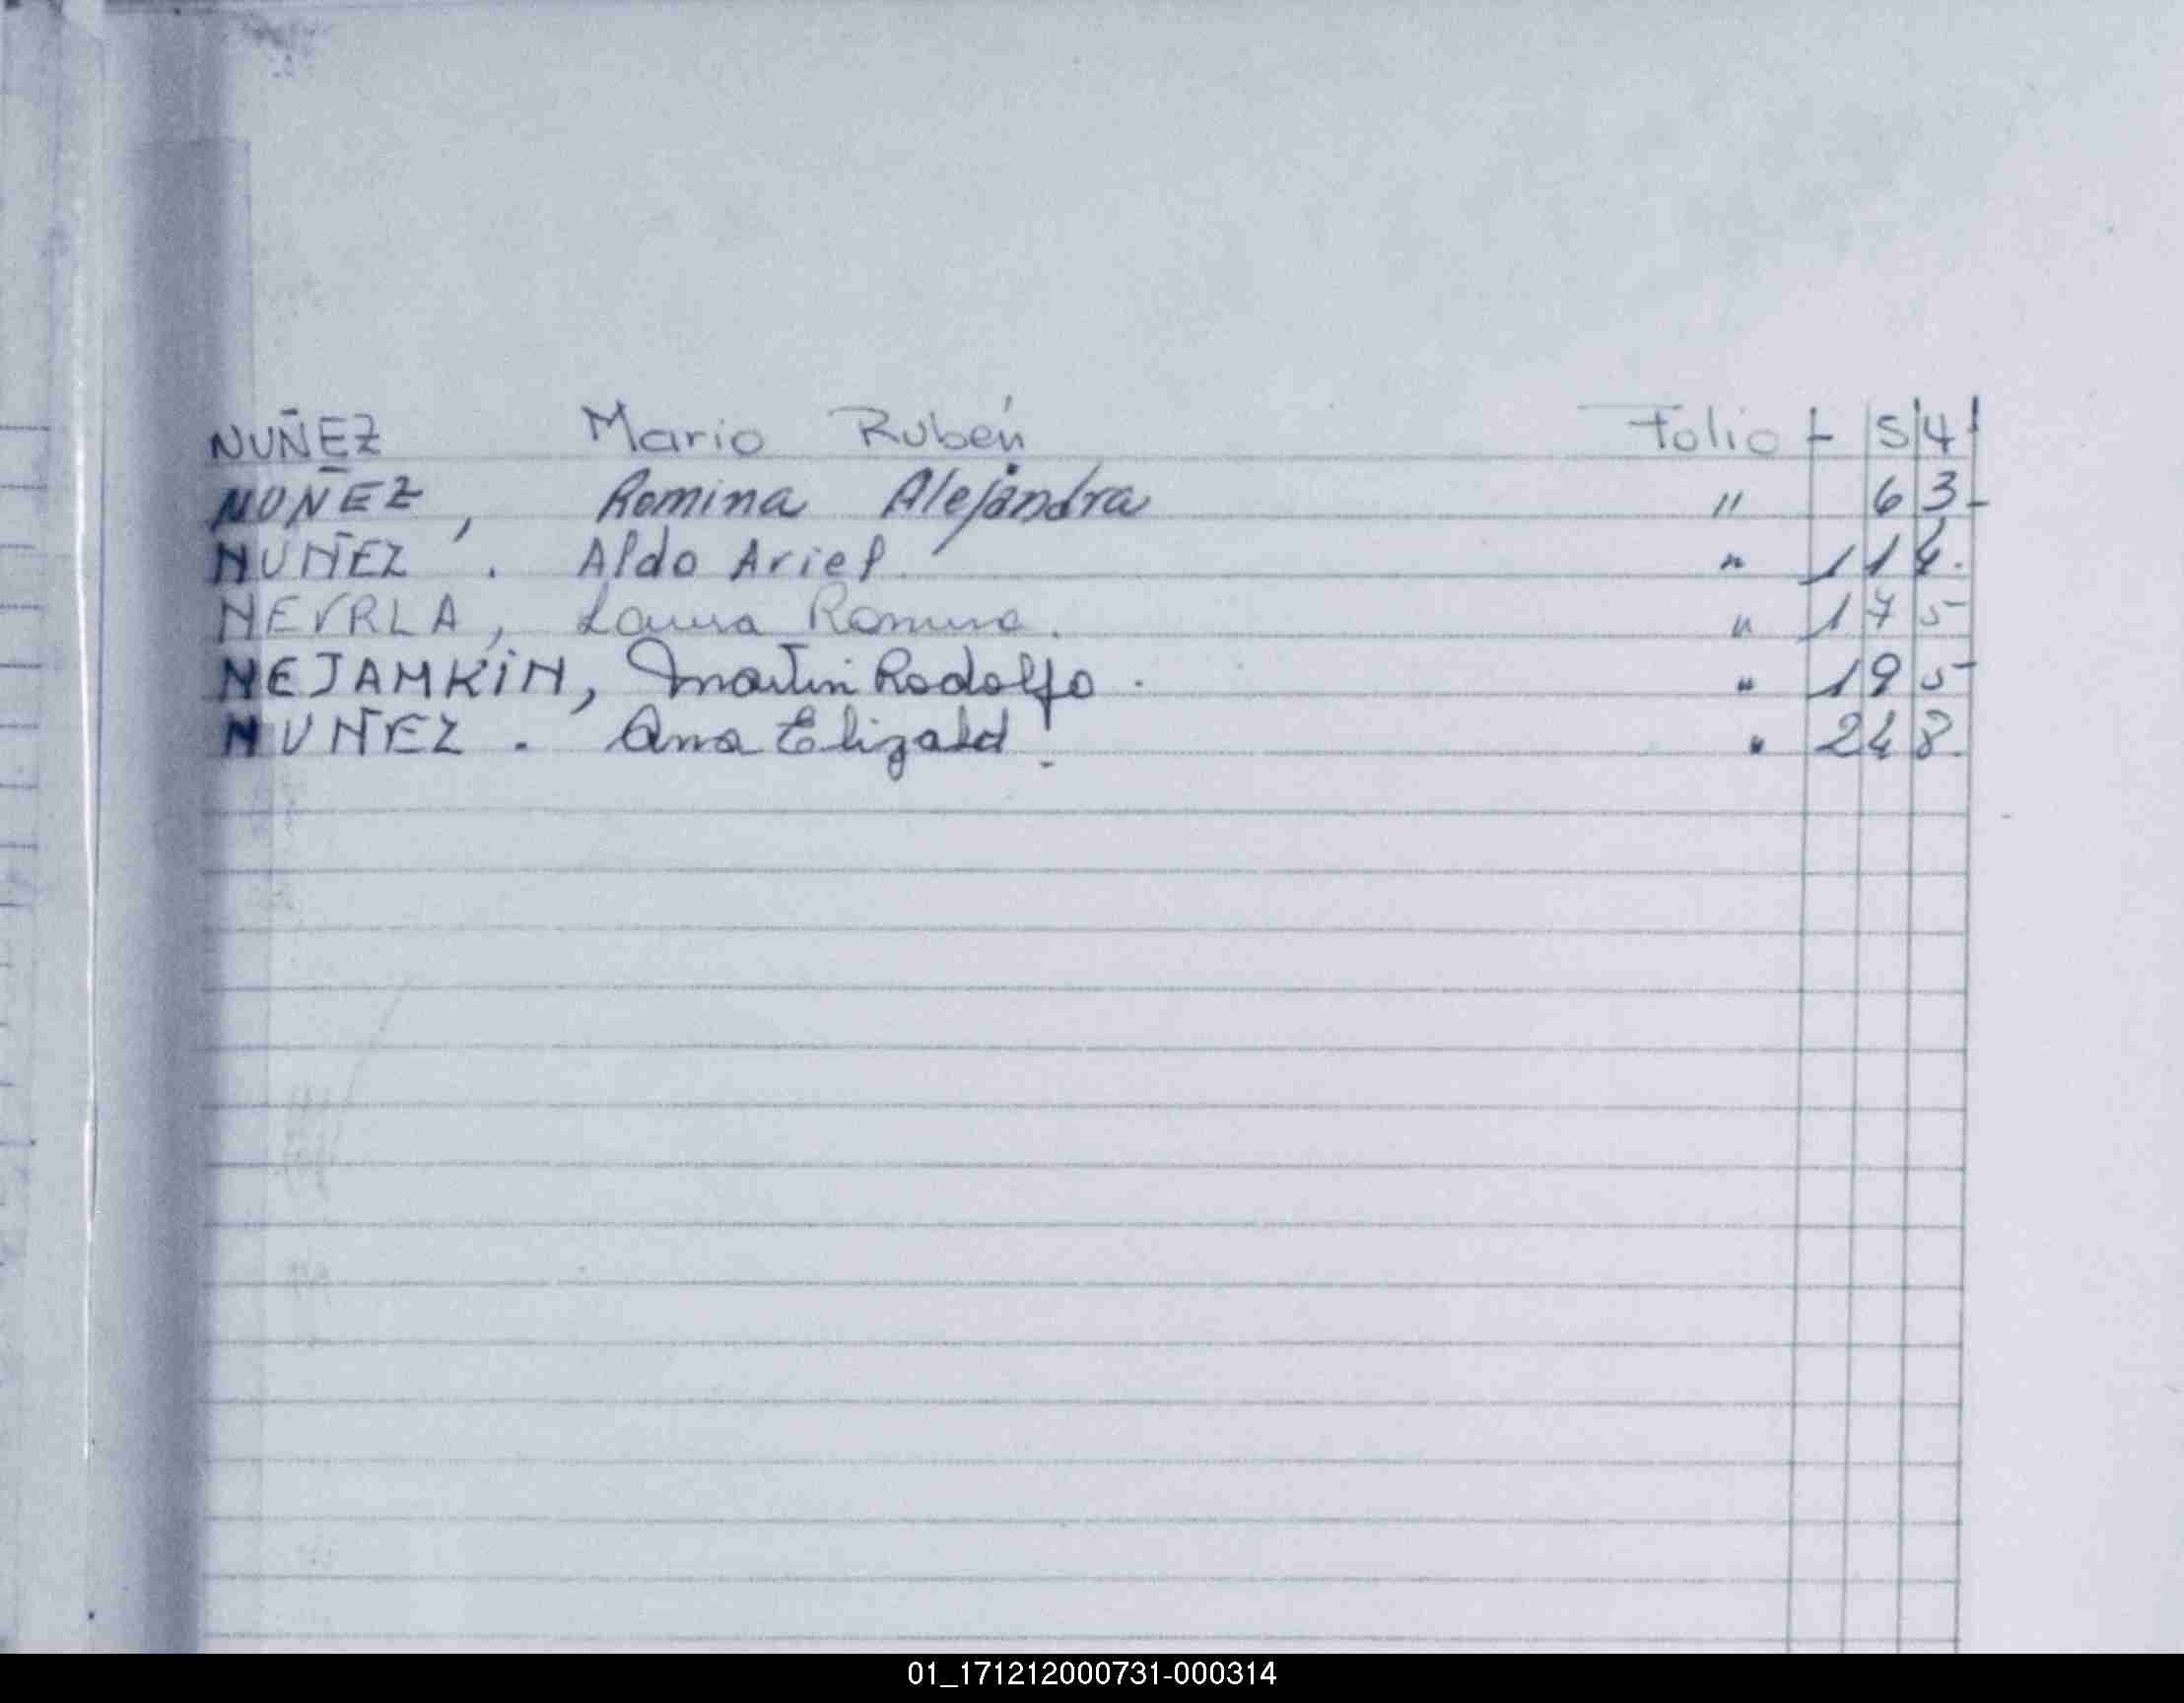 NUÑEZ Mario Rubén Folio - 54
NUÑEZ, Romina Alejandra " 63-
NUÑEZ. Aldo Ariel. " 114.
NEVRLA, Laura Romina. " 175
NEJAMKIN, Martin Rodolfo. " 195
NUÑEZ. Ana Elizabet. " 248.
01_171212000731-000314